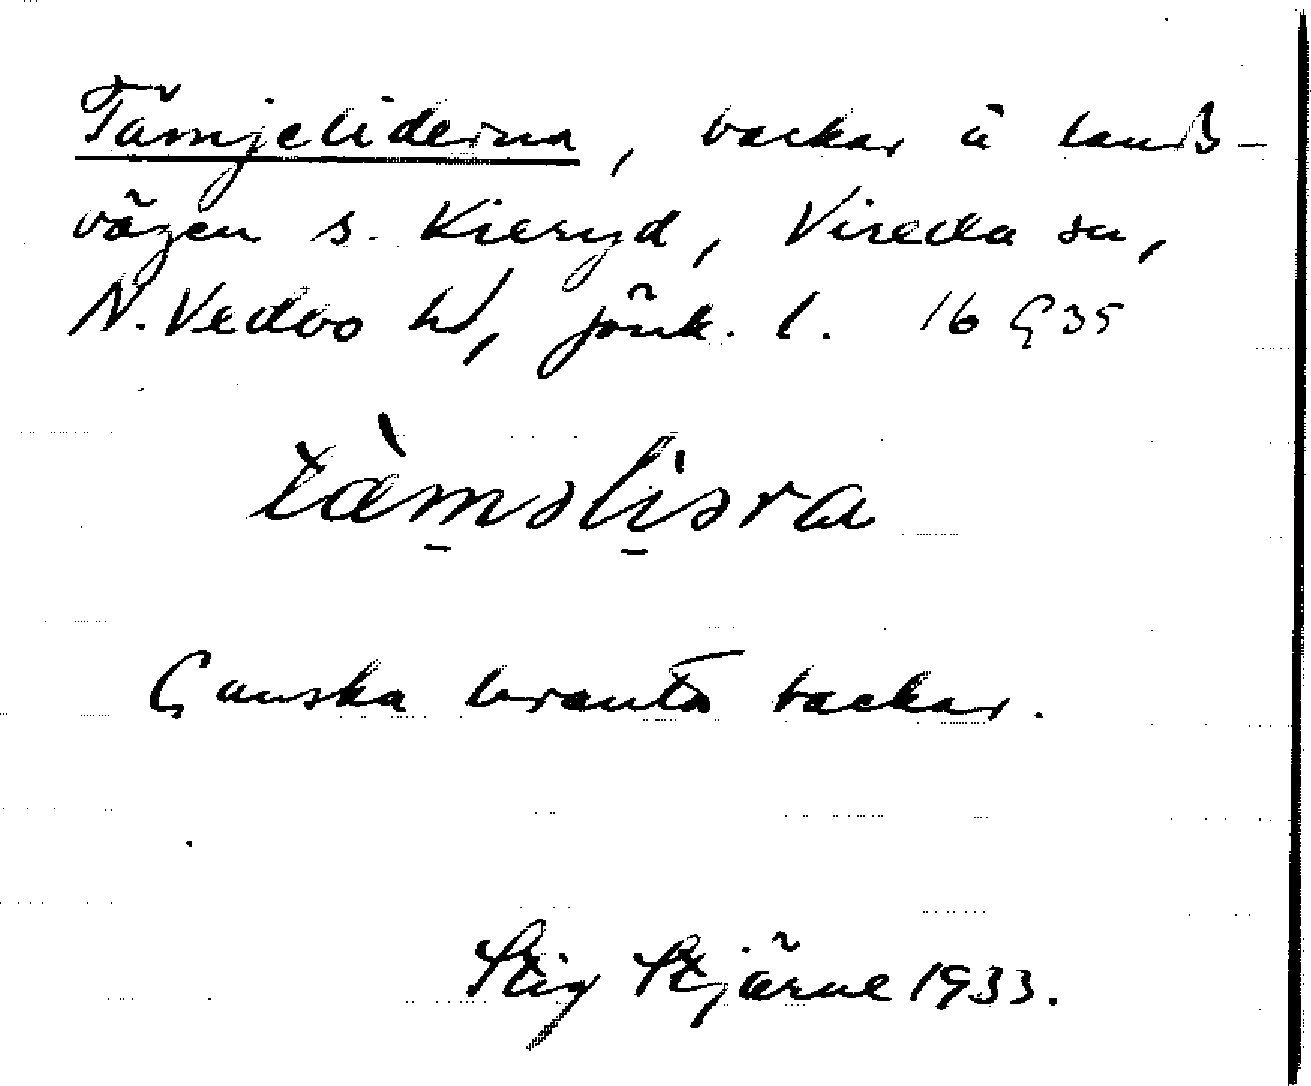 Tämjeliderna, backar å lands-
vägen s. Kieryd, Vireda sn,
N. Vedbo hd, Jönk. l. 16 G 35
tæ̀m̱əli̱əra
Ganska branta backar.
Stig Stjärne 1933.